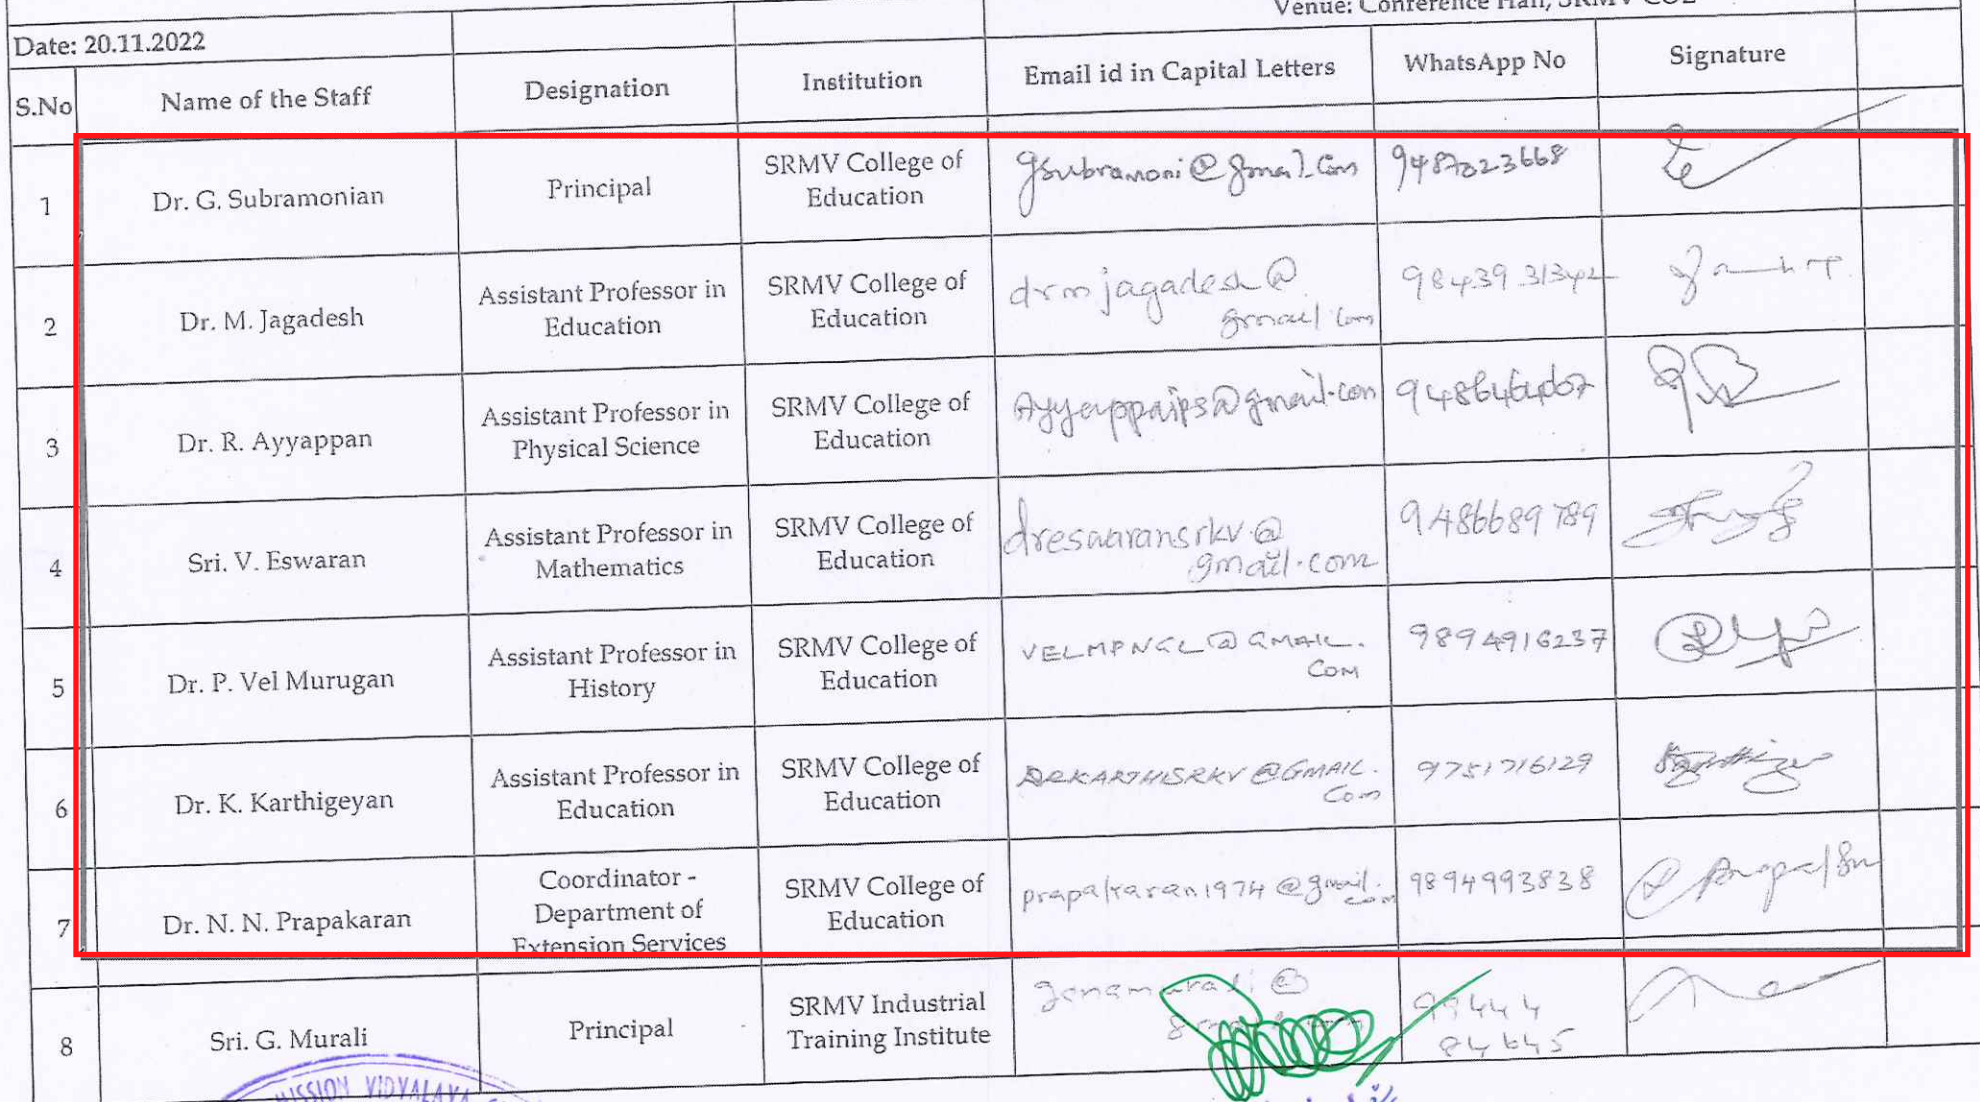 Venue: Conference Hall, SRMV COE
Date: 20.11.2022
S.No
Name of the Staff
Designation
Institution
Email id in Capital Letters
WhatsApp No
Signature
1
Dr. G. Subramonian
Principal
SRMV College of
Education
gsubramoni@gmail.com
9487023668
2
Dr. M. Jagadesh
Assistant Professor in
Education
SRMV College of
Education
drmjagadesh@
gmail.com
98439 31342
3
Dr. R. Ayyappan
Assistant Professor in
Physical Science
SRMV College of
Education
Ayyappaips@gmail.com
4
Sri. V. Eswaran
Assistant Professor in
Mathematics
SRMV College of
Education
dreswaransrkv@
gmail.com
9486689789
5
Dr. P. Vel Murugan
Assistant Professor in
History
SRMV College of
Education
VELMPNGL@GMAIL.
COM
9894916237
6
Dr. K. Karthigeyan
Assistant Professor in
Education
SRMV College of
Education
DRKARTHISRKV@GMAIL.
Com
9751716129
7
Dr. N. N. Prapakaran
Coordinator -
Department of
Extension Services
SRMV College of
Education
prapakaran1974@gmail.
com
9894993838
8
Sri. G. Murali
Principal
SRMV Industrial
Training Institute
99444
84645
MISSION VIDYALAYA